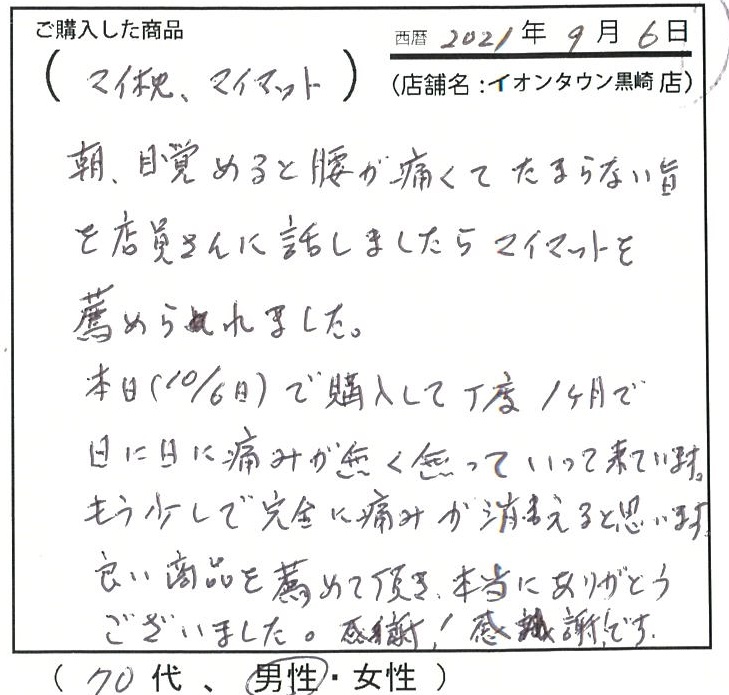 ご購入した商品
西暦 2021年9月6日
(マイ枕、マイマット)
(店舗名:イオンタウン黒崎店)
朝、目覚めると腰が痛くてたまらない旨
を店員さんに話しましたらマイマットを
薦められました。
本日(10/6日)で購入して丁度1ヶ月で
日に日に痛みが無く無っていって来ています。
もう少しで完全に痛みが消えると思います。
良い商品を薦めて頂き、本当にありがとう
ございました。感謝!感謝!です。
(70代、男性・女性)